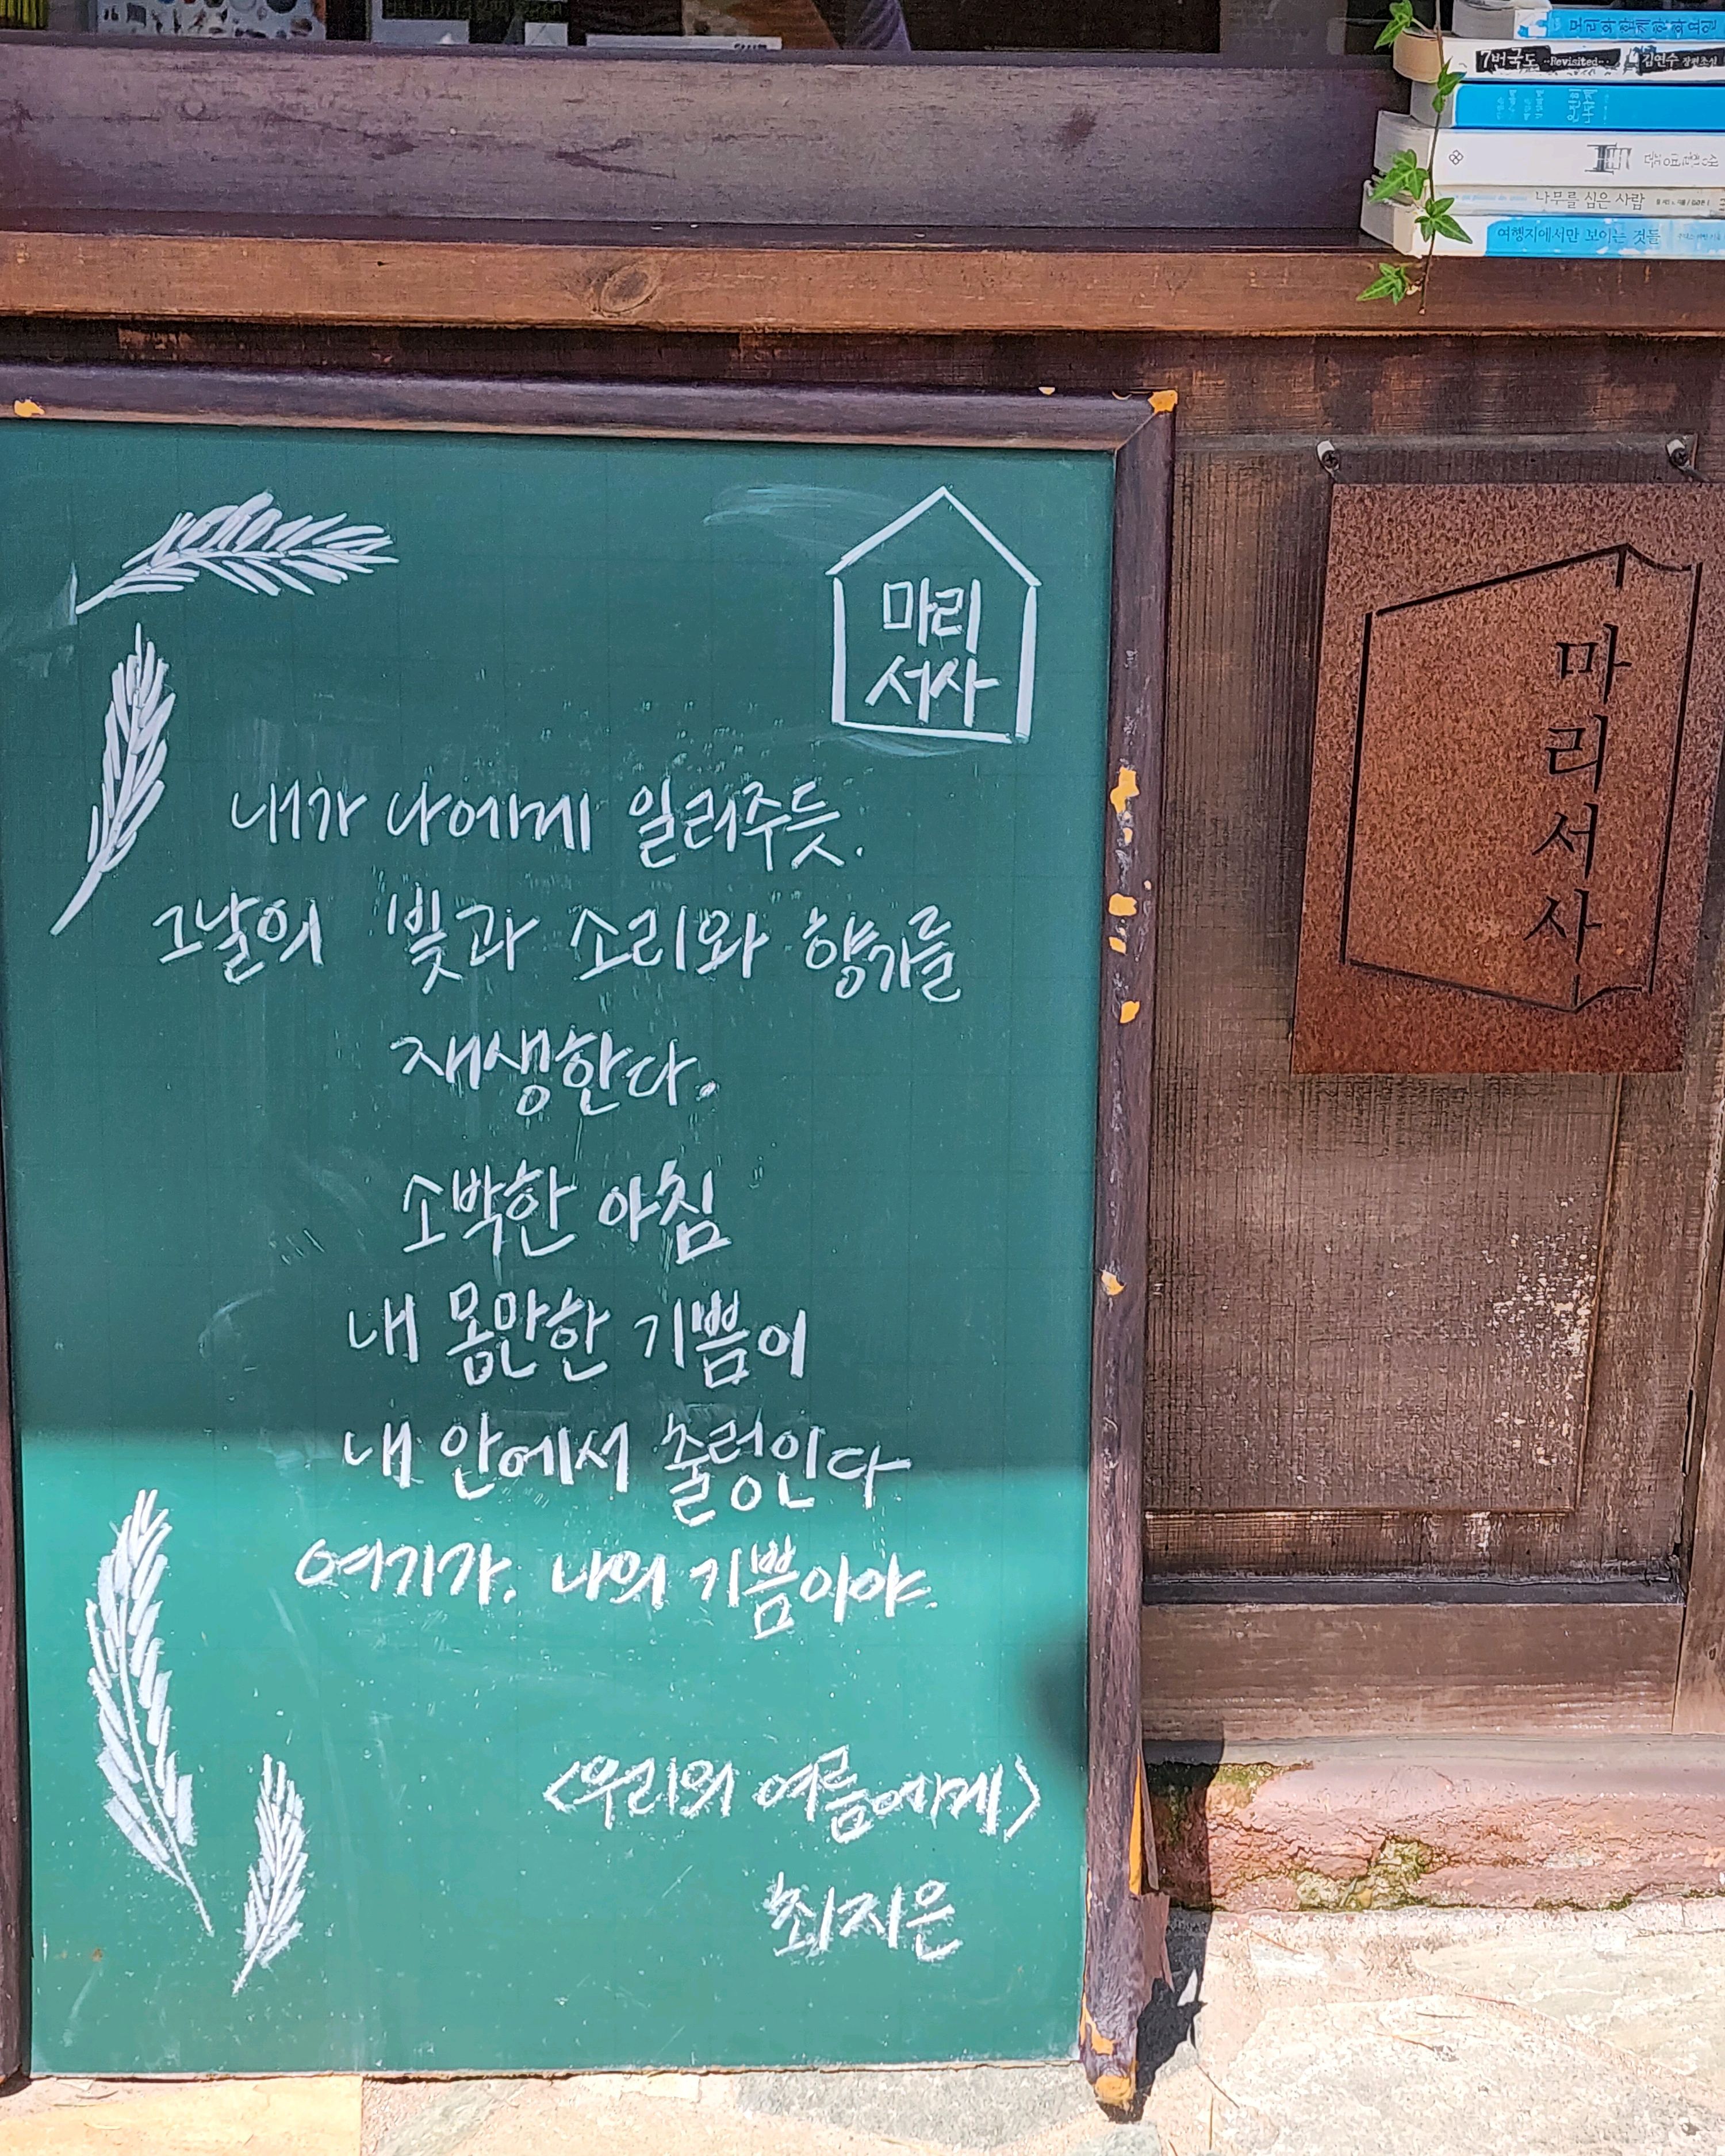 모리와 함께한 화요일
7번국도 Revisited 김연수 장편소설
나무를 심은 사람
여행지에서만 보이는 것들
마리
서사
내가 나에게 일러주듯.
그날의 빛과 소리와 향기를
재생한다.
소박한 아침
내 몸만한 기쁨이
내 안에서 출렁인다
여기가. 나의 기쁨이야.
<우리의 여름에게>
최지은
마리서사